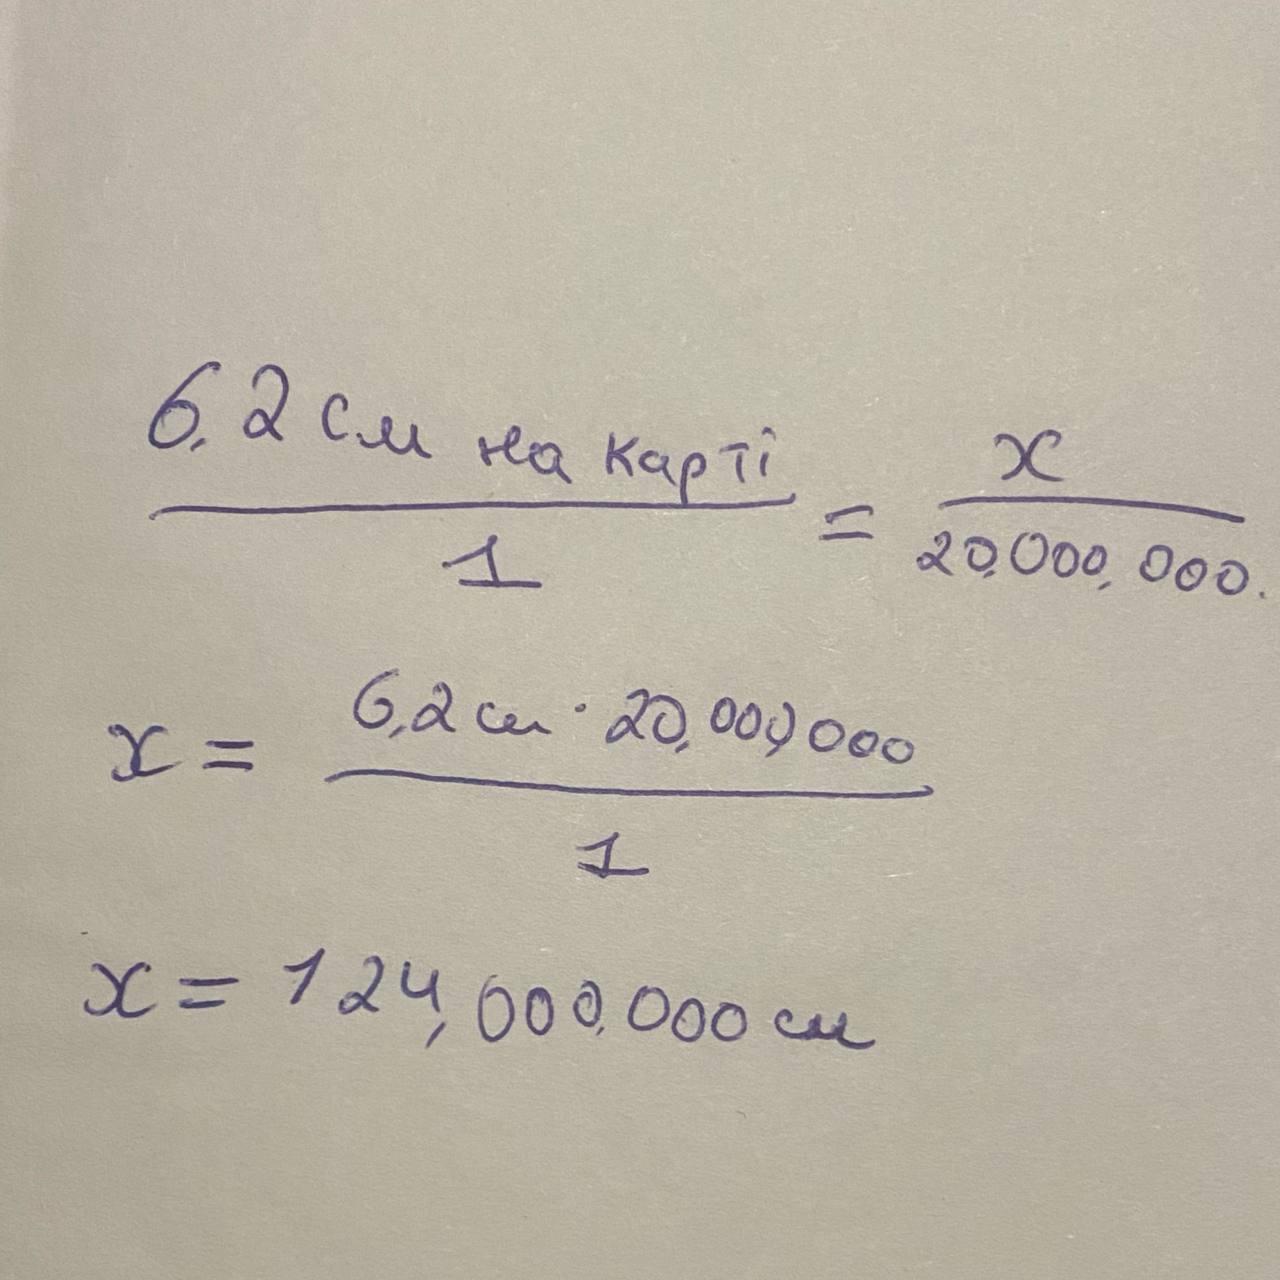 6,2 см на карті / 1 = x / 20,000,000.
x = 6,2 см · 20,000,000 / 1
x = 124,000,000 см